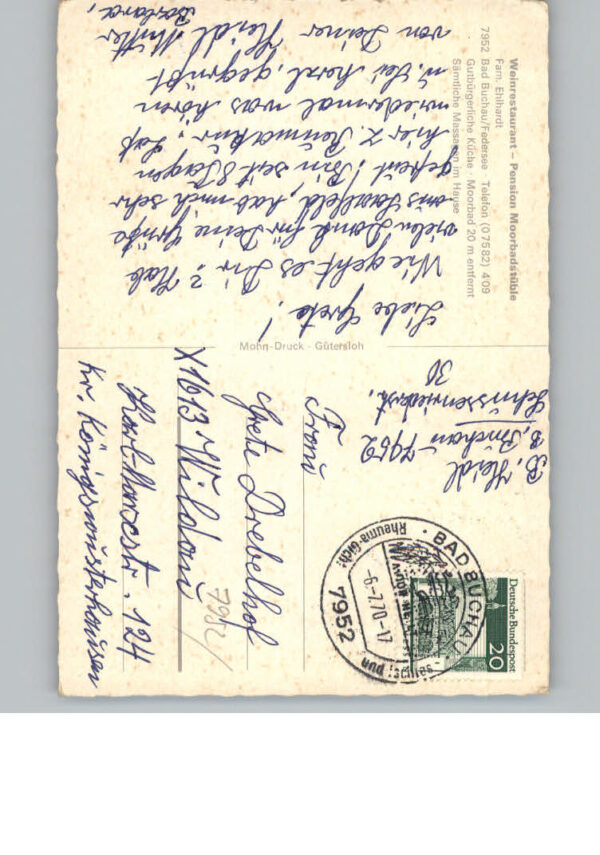 Weinrestaurant – Pension Moorbadstüble
Fam. Ehlhardt
7952 Bad Buchau/Federsee Telefon (07582) 409
Gutbürgerliche Küche · Moorbad 20 m entfernt
Sämtliche Massagen im Hause
Liebe Grete!
Wie geht es Dir? Hab
vielen Dank für Deine Grüße
aus Saalfeld, hab mich sehr
gefreut! Bin seit 8 Tagen
hier z. Rheumakur. Laß
wiedermal was hören
u. sei herzl. gegrüßt
von Deiner Heidi, Mutter
Barbara,
Mohn-Druck · Gütersloh
B. Heidi
B. Buchau 7952
30
Frau
Grete Drebelhof
X1613 Wildau
Karl-Marxstr. 124
Kr. Königswusterhausen
7952/
Deutsche Bundespost
20
BAD BUCHAU
7952
-6.-7.70-17
Rheuma-Gicht